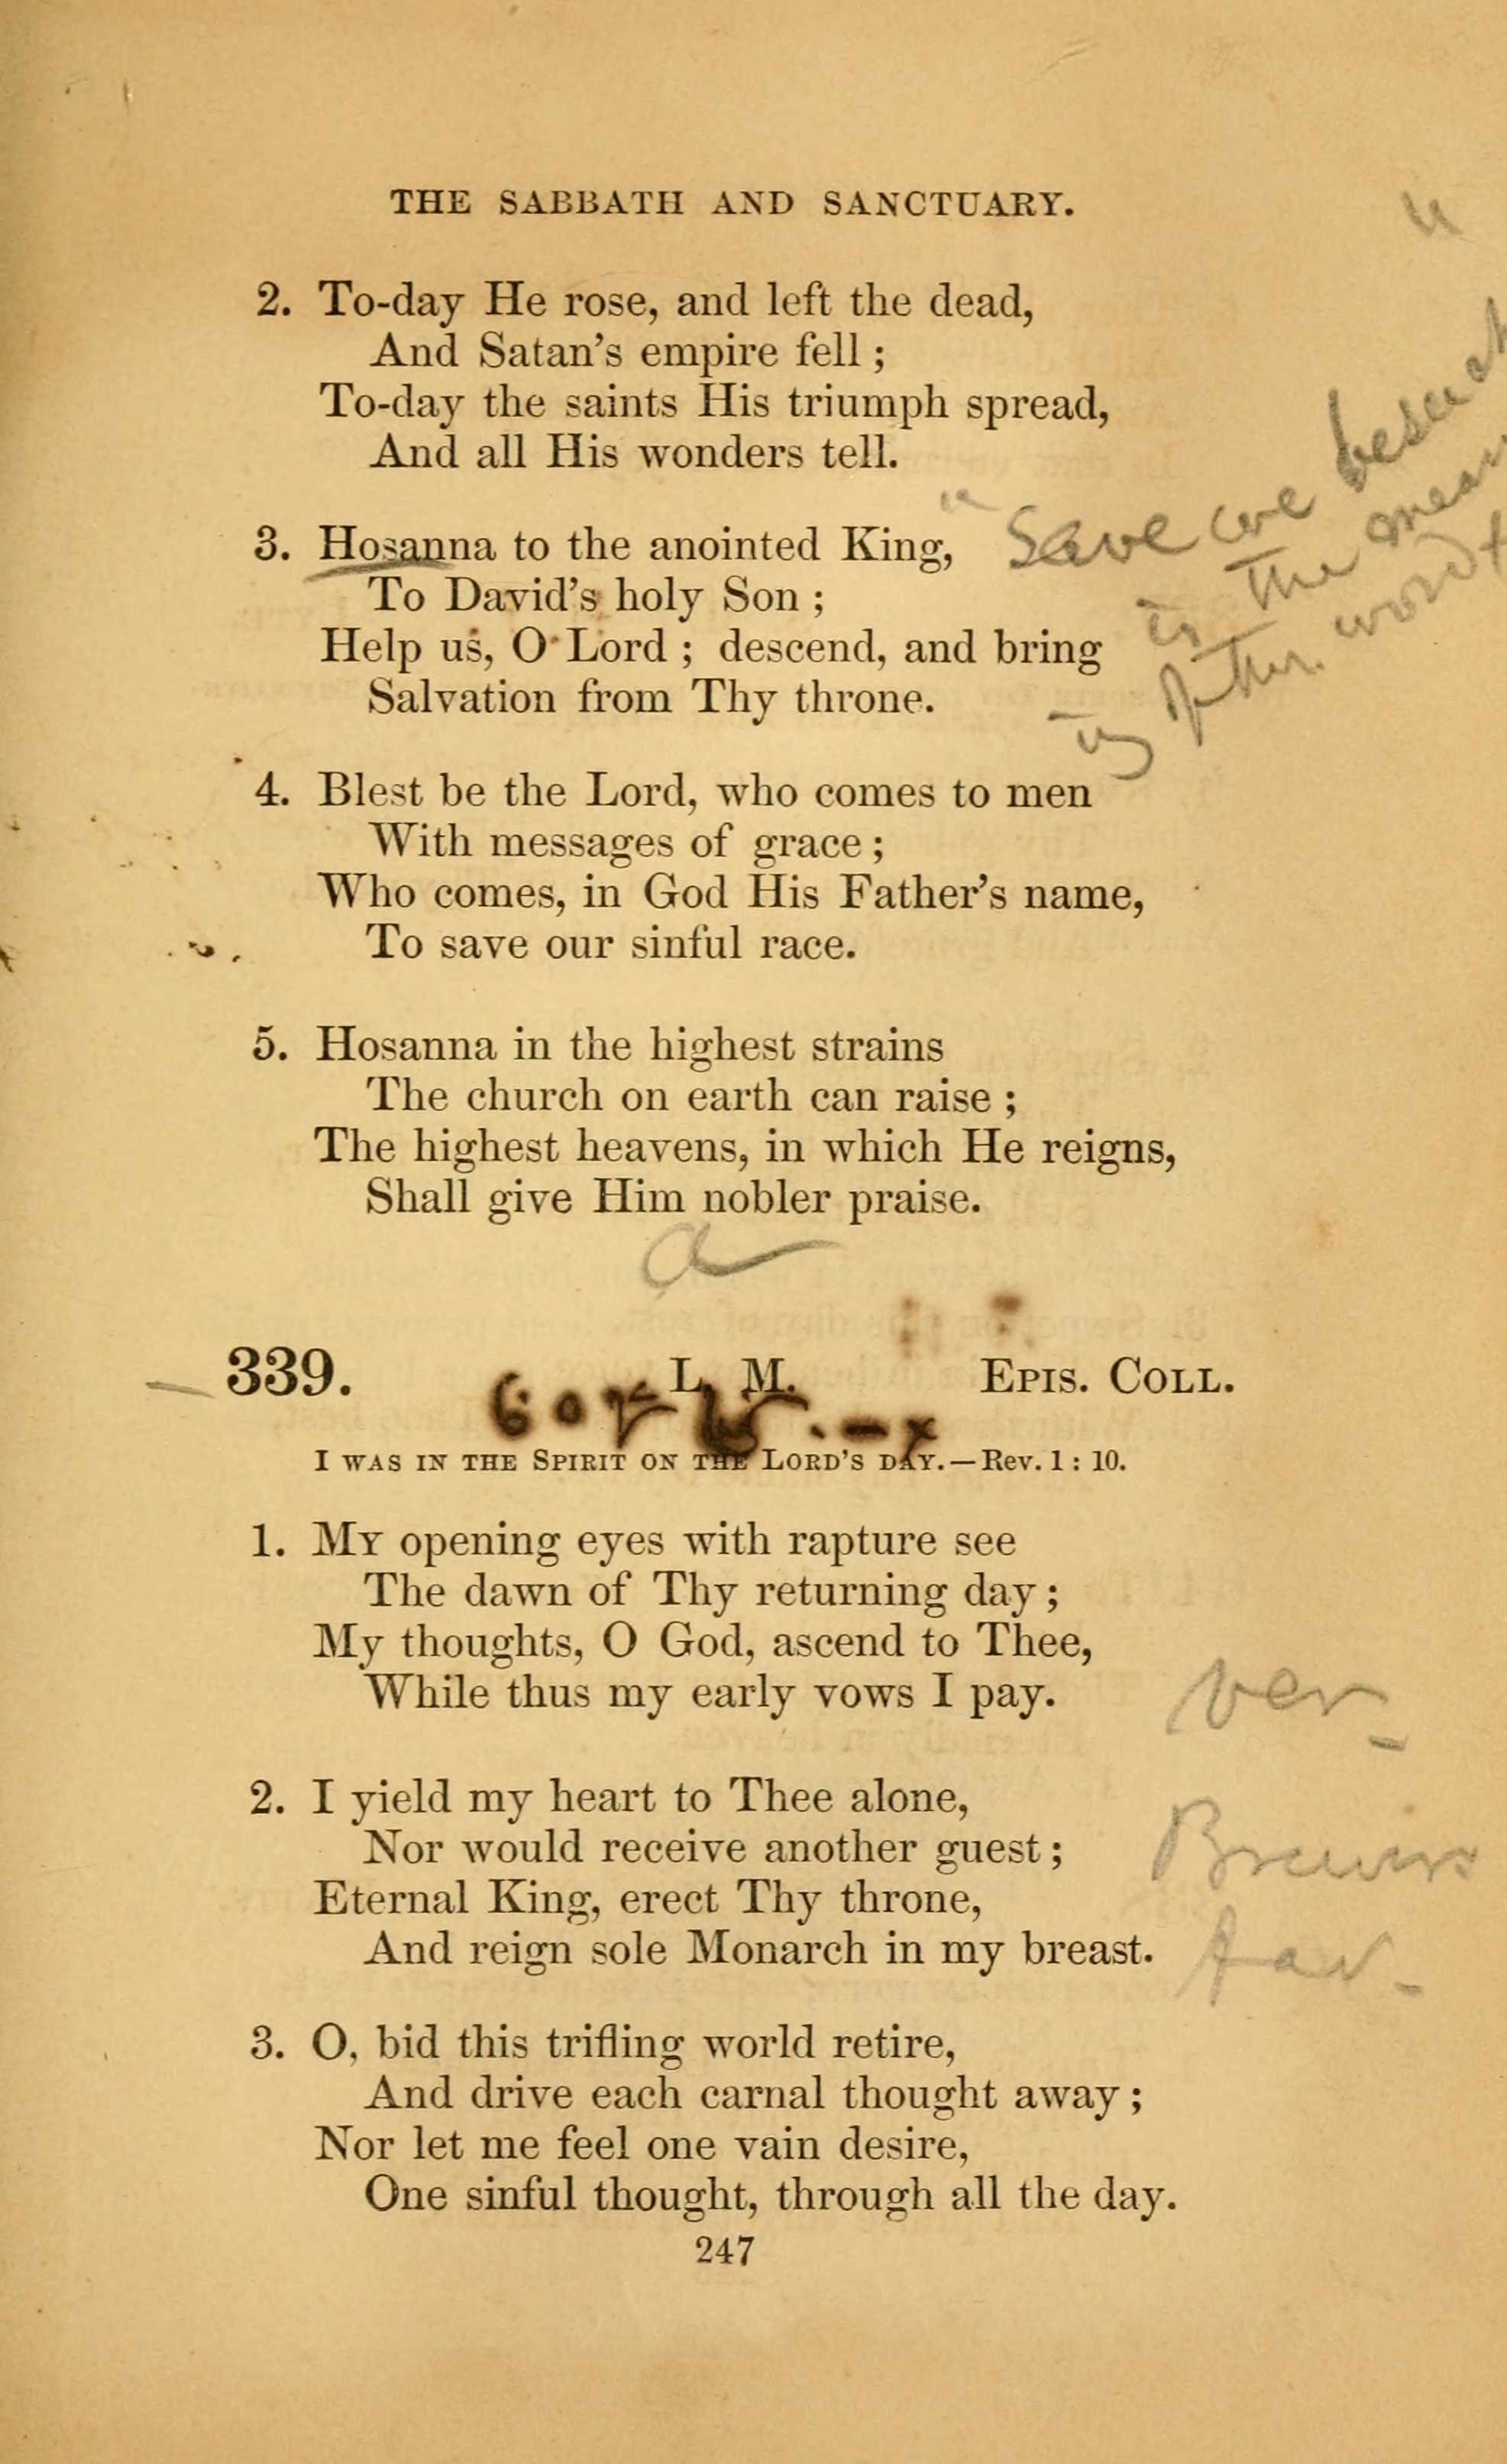 THE SABBATH AND SANCTUARY.
2. To-day He rose, and left the dead,
And Satan's empire fell ;
To-day the saints His triumph spread,
And all His wonders tell.
3. Hosanna to the anointed King,
To David's holy Son ;
Help us, O Lord ; descend, and bring
Salvation from Thy throne.
" Save we beseech "
is the mean
ing of the word
4. Blest be the Lord, who comes to men
With messages of grace ;
Who comes, in God His Father's name,
To save our sinful race.
5. Hosanna in the highest strains
The church on earth can raise ;
The highest heavens, in which He reigns,
Shall give Him nobler praise.
a
339. L. M. EPIS. COLL.
I WAS IN THE SPIRIT ON THE LORD'S DAY.—Rev. 1 : 10.
1. MY opening eyes with rapture see
The dawn of Thy returning day ;
My thoughts, O God, ascend to Thee,
While thus my early vows I pay.
ver
2. I yield my heart to Thee alone,
Nor would receive another guest ;
Eternal King, erect Thy throne,
And reign sole Monarch in my breast.
fav
3. O, bid this trifling world retire,
And drive each carnal thought away ;
Nor let me feel one vain desire,
One sinful thought, through all the day.
247